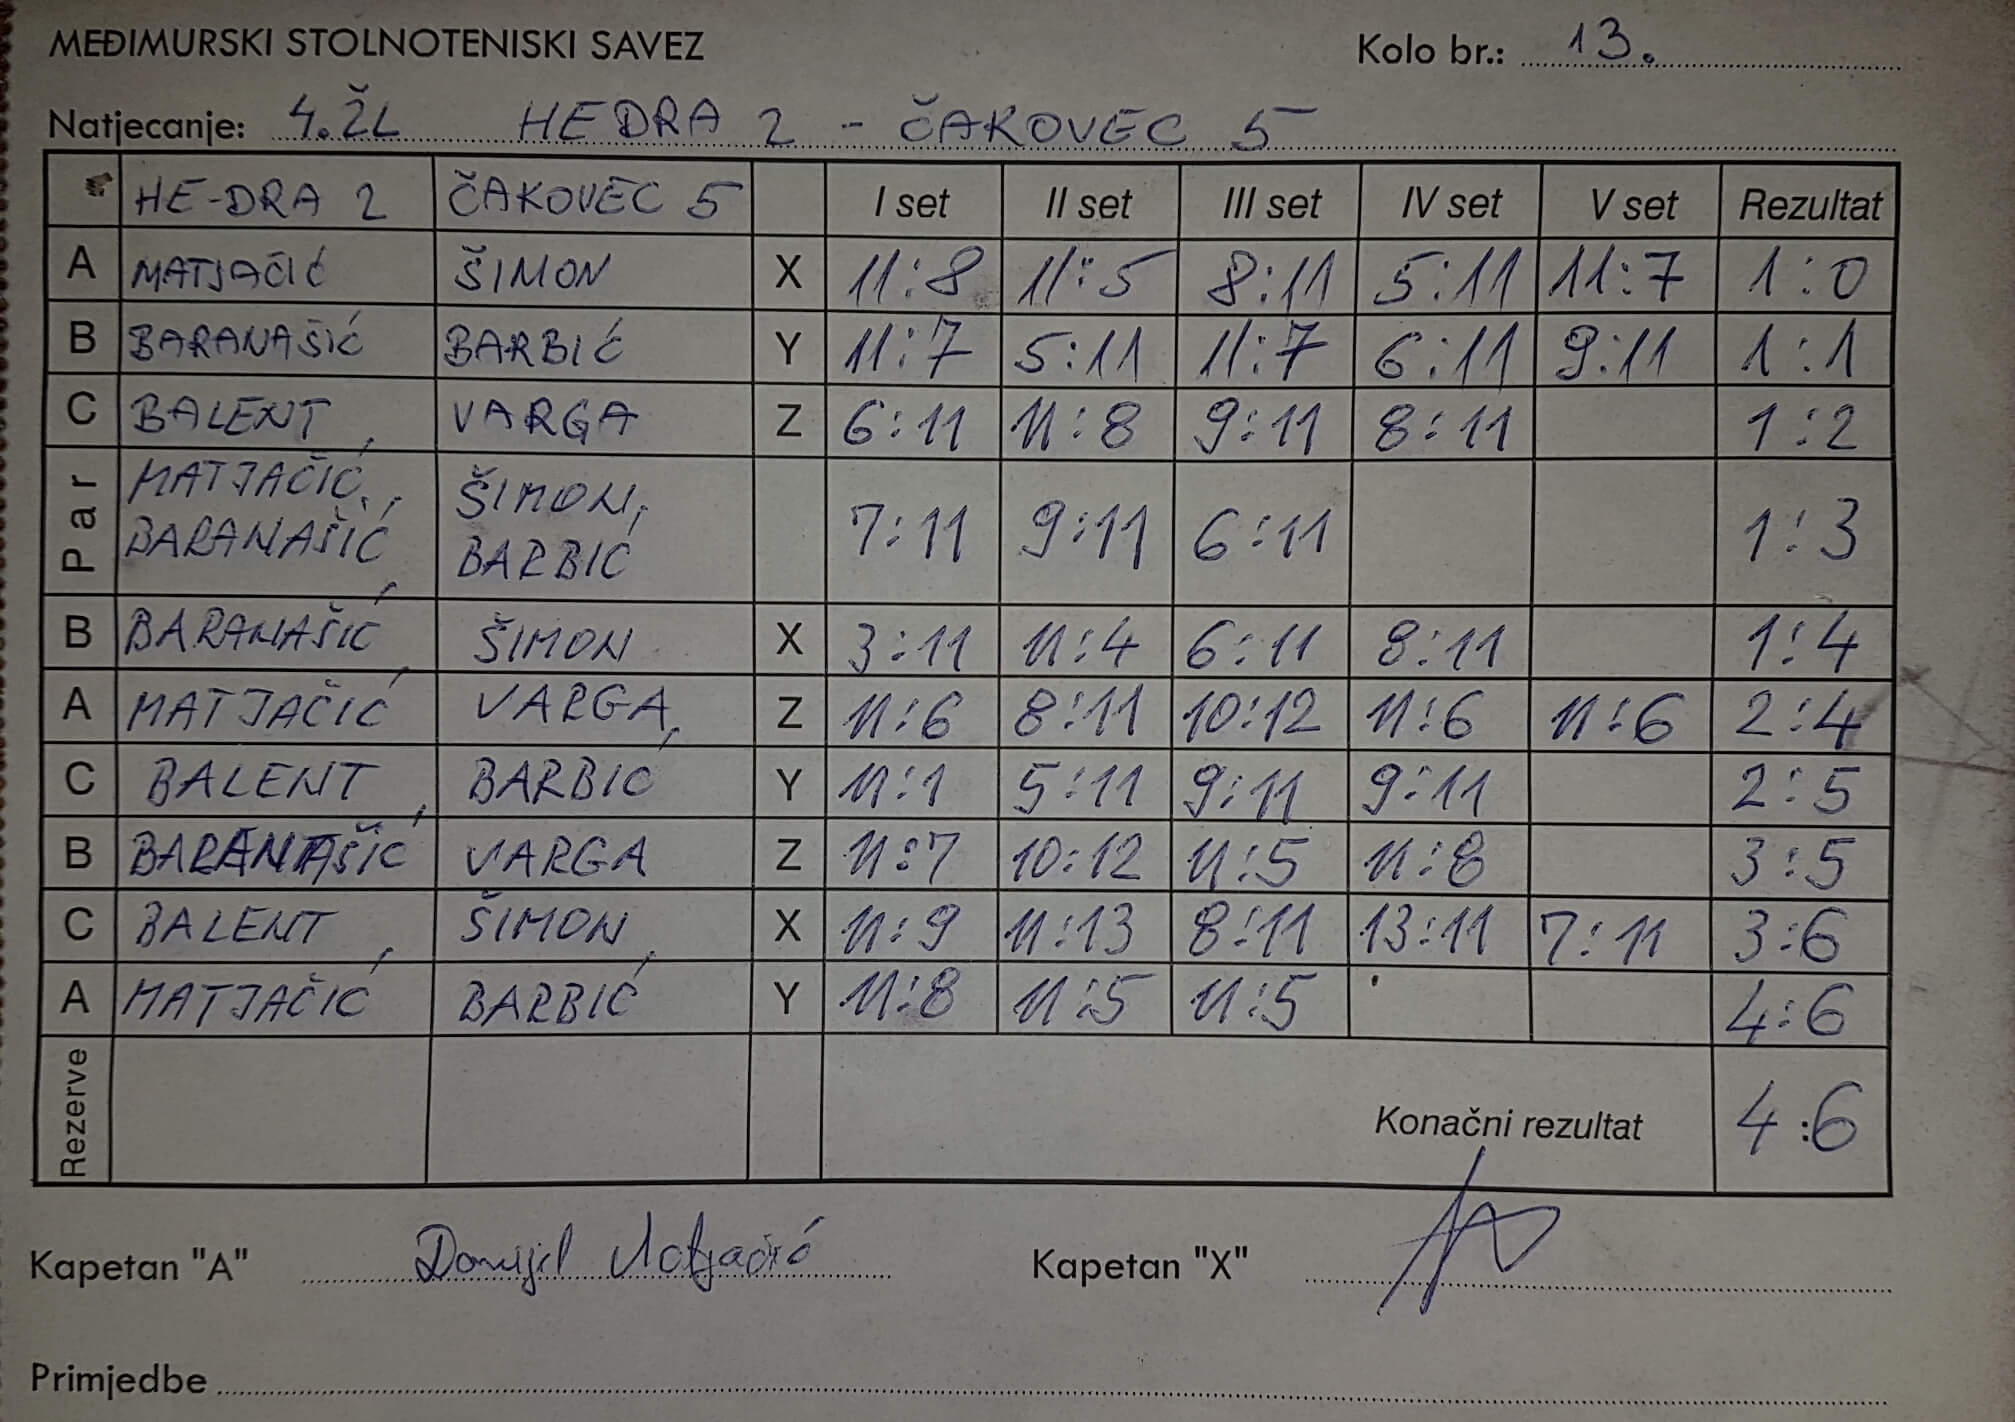 MEĐIMURSKI STOLNOTENISKI SAVEZ Kolo br.: 13.
Natjecanje: 4.ŽL HEDRA 2 - ČAKOVEC 5
HE-DRA 2 ČAKOVEC 5 I set II set III set IV set V set Rezultat
A MATJAČIĆ ŠIMON X 11:8 11:5 8:11 5:11 11:7 1:0
B BARANAŠIĆ BARBIĆ Y 11:7 5:11 11:7 6:11 9:11 1:1
C BALENT VARGA Z 6:11 11:8 9:11 8:11 1:2
Par MATJAČIĆ, ŠIMON, 7:11 9:11 6:11 1:3
BARANAŠIĆ BARBIĆ
B BARANAŠIĆ ŠIMON X 3:11 11:4 6:11 8:11 1:4
A MATJAČIĆ VARGA Z 11:6 8:11 10:12 11:6 11:6 2:4
C BALENT BARBIĆ Y 11:1 5:11 9:11 9:11 2:5
B BARANAŠIĆ VARGA Z 11:7 10:12 11:5 11:8 3:5
C BALENT ŠIMON X 11:9 11:13 8:11 13:11 7:11 3:6
A MATJAČIĆ BARBIĆ Y 11:8 11:5 11:5 4:6
Rezerve Konačni rezultat 4:6
Kapetan "A" Danijel Matjačić Kapetan "X"
Primjedbe